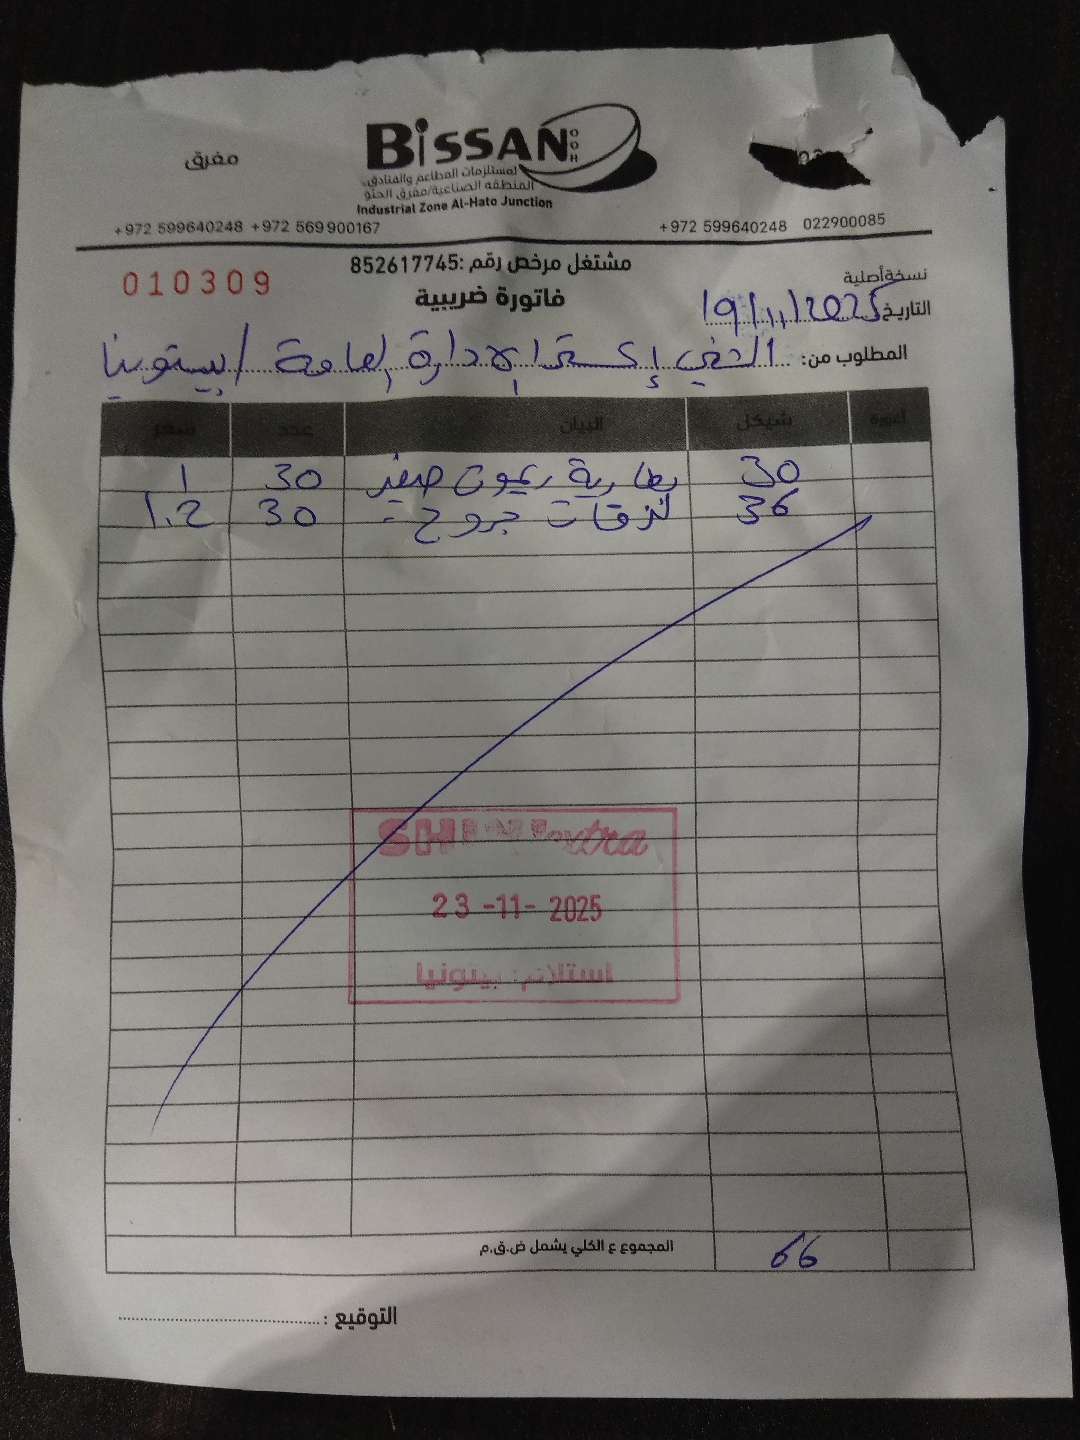 BiSSAN
OOH
مفرق
لمستلزمات المطاعم والفنادق
المنطقه الصناعية/مفرق الحتو
Industrial Zone Al-Hato Junction
+972 599640248 +972 569900167
+972 599640248 022900085
مشتغل مرخص رقم :852617745
010309
فاتورة ضريبية
نسخة أصلية
التاريخ 19/11/2025
المطلوب من: الشني إكسترا الإدارة العامة / بيتونيا
أغورة شيكل البيان عدد سعر
30 بطارية ريموت صغير 30 1
36 لزقات جروح - 30 1.2
SH extra
23 -11- 2025
استلام: بيتونيا
المجموع ع الكلي يشمل ض.ق.م 66
التوقيع :